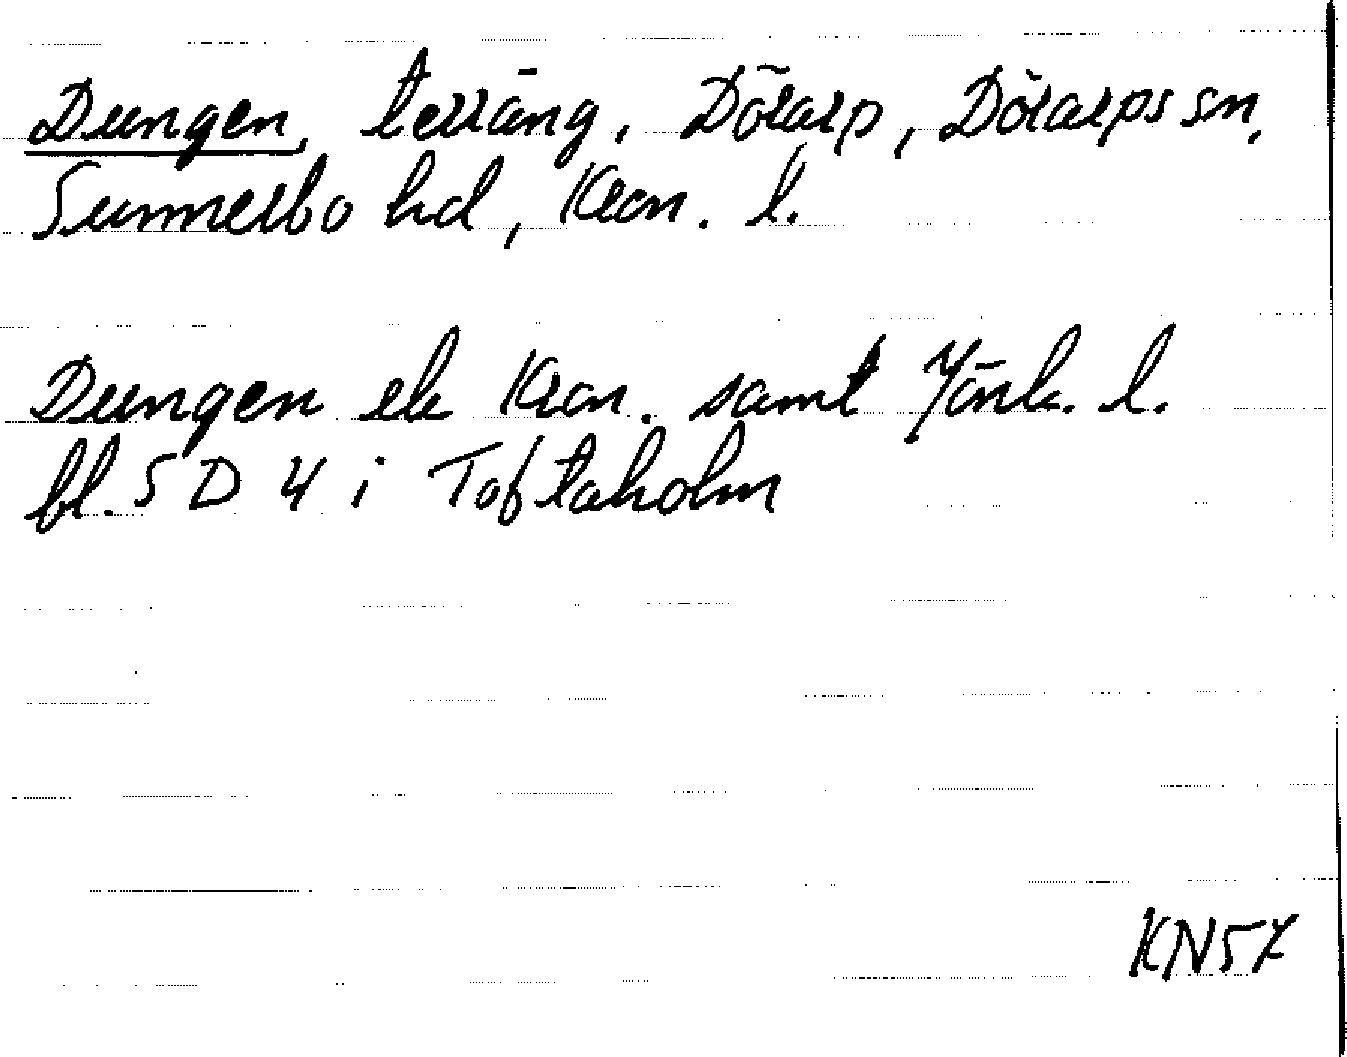 Dungen, terräng, Dörarp, Dörarps sn,
Sunnerbo hd, Kron. l.
Dungen ek Kron. samt Jönk. l.
bl. 5 D 4 i Toftaholm
KN57